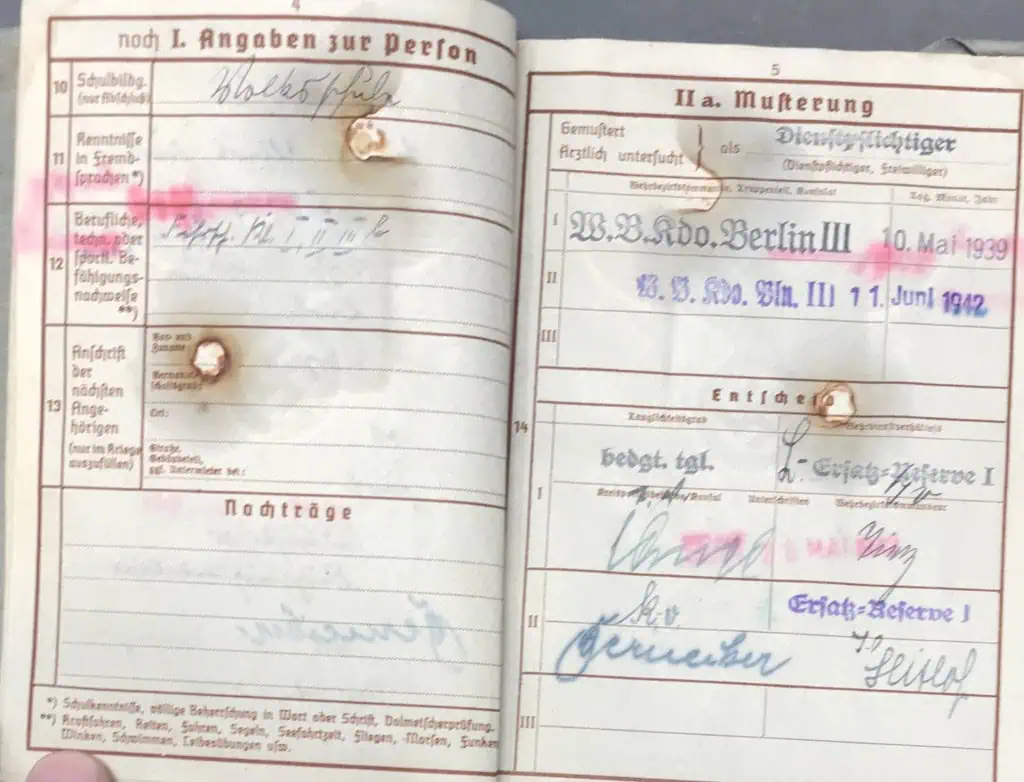 4
noch I. Angaben zur Person
10 Schulbildg.
(nur Abschluß)
Volksschule
11 Kenntnisse
in Fremd-
sprachen *)
12 Berufliche,
techn. oder
sportl. Be-
fähigungs-
nachweise
**)
I, II, III
13 Anschrift
der
nächsten
Ange-
hörigen
(nur im Kriege
auszufüllen)
Vor- und
Zuname
Ort:
Straße,
Nachträge
*) Schulkenntnisse, völlige Beherrschung in Wort oder Schrift, Dolmetscherprüfung.
**) Kraftfahren, Reiten, Fahren, Segeln, Seefahrtzeit, Fliegen, Morsen, Funken
Winken, Schwimmen, Leibesübungen usw.
5
II a. Musterung
Gemustert
Ärztlich untersucht
als
Dienstpflichtiger
(Dienstpflichtiger, Freiwilliger)
Tag, Monat, Jahr
I W.B.Kdo. Berlin III 10. Mai 1939
II W. B. Kdo. Bln. III 11. Juni 1942
III
Entscheid
14
Tauglichkeitsgrad Wehrdienstverhältnis
I bedgt. tgl. Ersatz=Reserve I
Unterschriften
II k.v. Ersatz=Reserve I
III